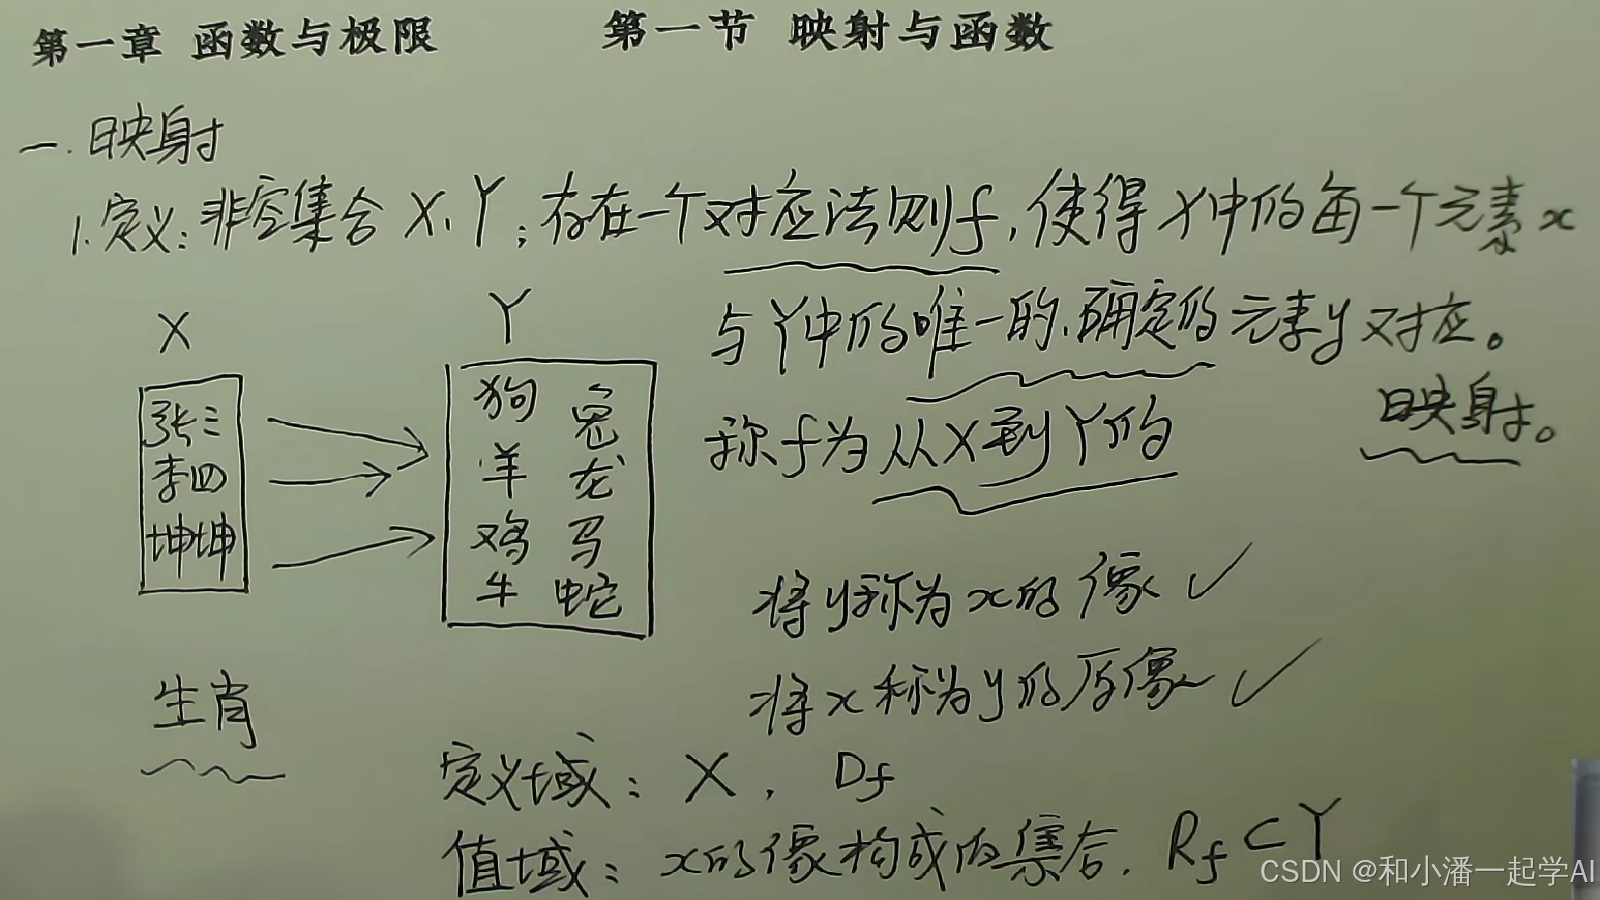 第一章 函数与极限 第一节 映射与函数
一. 映射
1.定义:非空集合 X、Y;存在一个对应法则f,使得X中的每一个元素x
与Y中的唯一的、确定的元素y对应。
称f为从X到Y的
映射。
X
张三
李四
坤坤
Y
狗 兔
羊 龙
鸡 马
牛 蛇
生肖
将y称为x的像 ✓
将x称为y的原像 ✓
定义域: X, Df
值域: x的像构成的集合. Rf⊂Y
CSDN @和小潘一起学AI